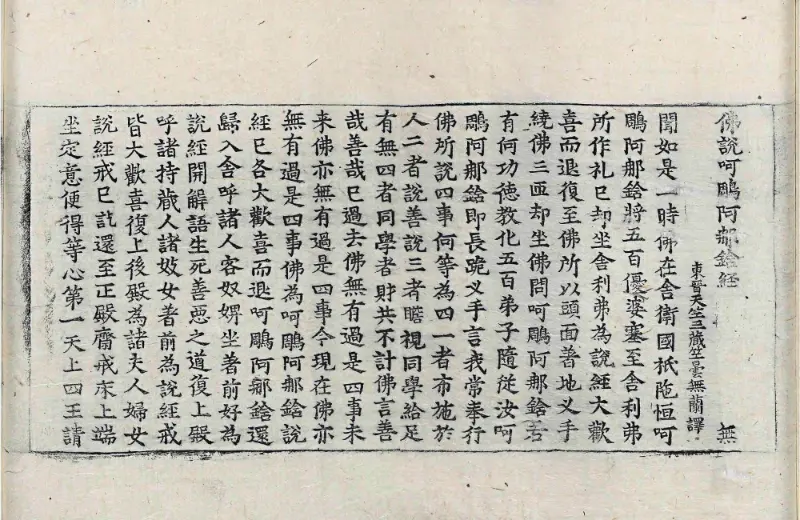 佛說呵鵰阿那鋡經 無
東晉天竺三藏竺曇無蘭譯
聞如是一時佛在舍衛國祇陁恒呵
鵰阿那鋡將五百優婆塞至舍利弗
所作礼已却坐舍利弗為說經大歡
喜而退復至佛所以頭面著地叉手
繞佛三匝却坐佛問呵鵰阿那鋡若
有何功德教化五百弟子隨從汝呵
鵰阿那鋡即長跪叉手言我常奉行
佛所說四事何等為四一者布施於
人二者說善說三者瞻視同學給足
有無四者同學者財共不計佛言善
哉善哉已過去佛無有過是四事未
来佛亦無有過是四事今現在佛亦
無有過是四事佛為呵鵰阿那鋡說
經已各大歡喜而退呵鵰阿那鋡還
歸入舍呼諸人客奴婢坐著前好為
說經開解語生死善惡之道復上殿
呼諸持歳人諸妓女著前為說經戒
皆大歡喜復上後殿為諸夫人婦女
說經戒已訖還至正殿齋戒床上端
坐定意便得等心第一天上四王請